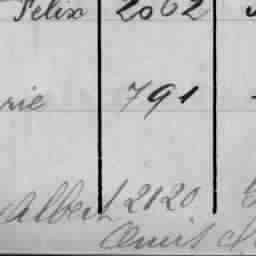 Felix 2062
rie 791
Albert 2120
Omis